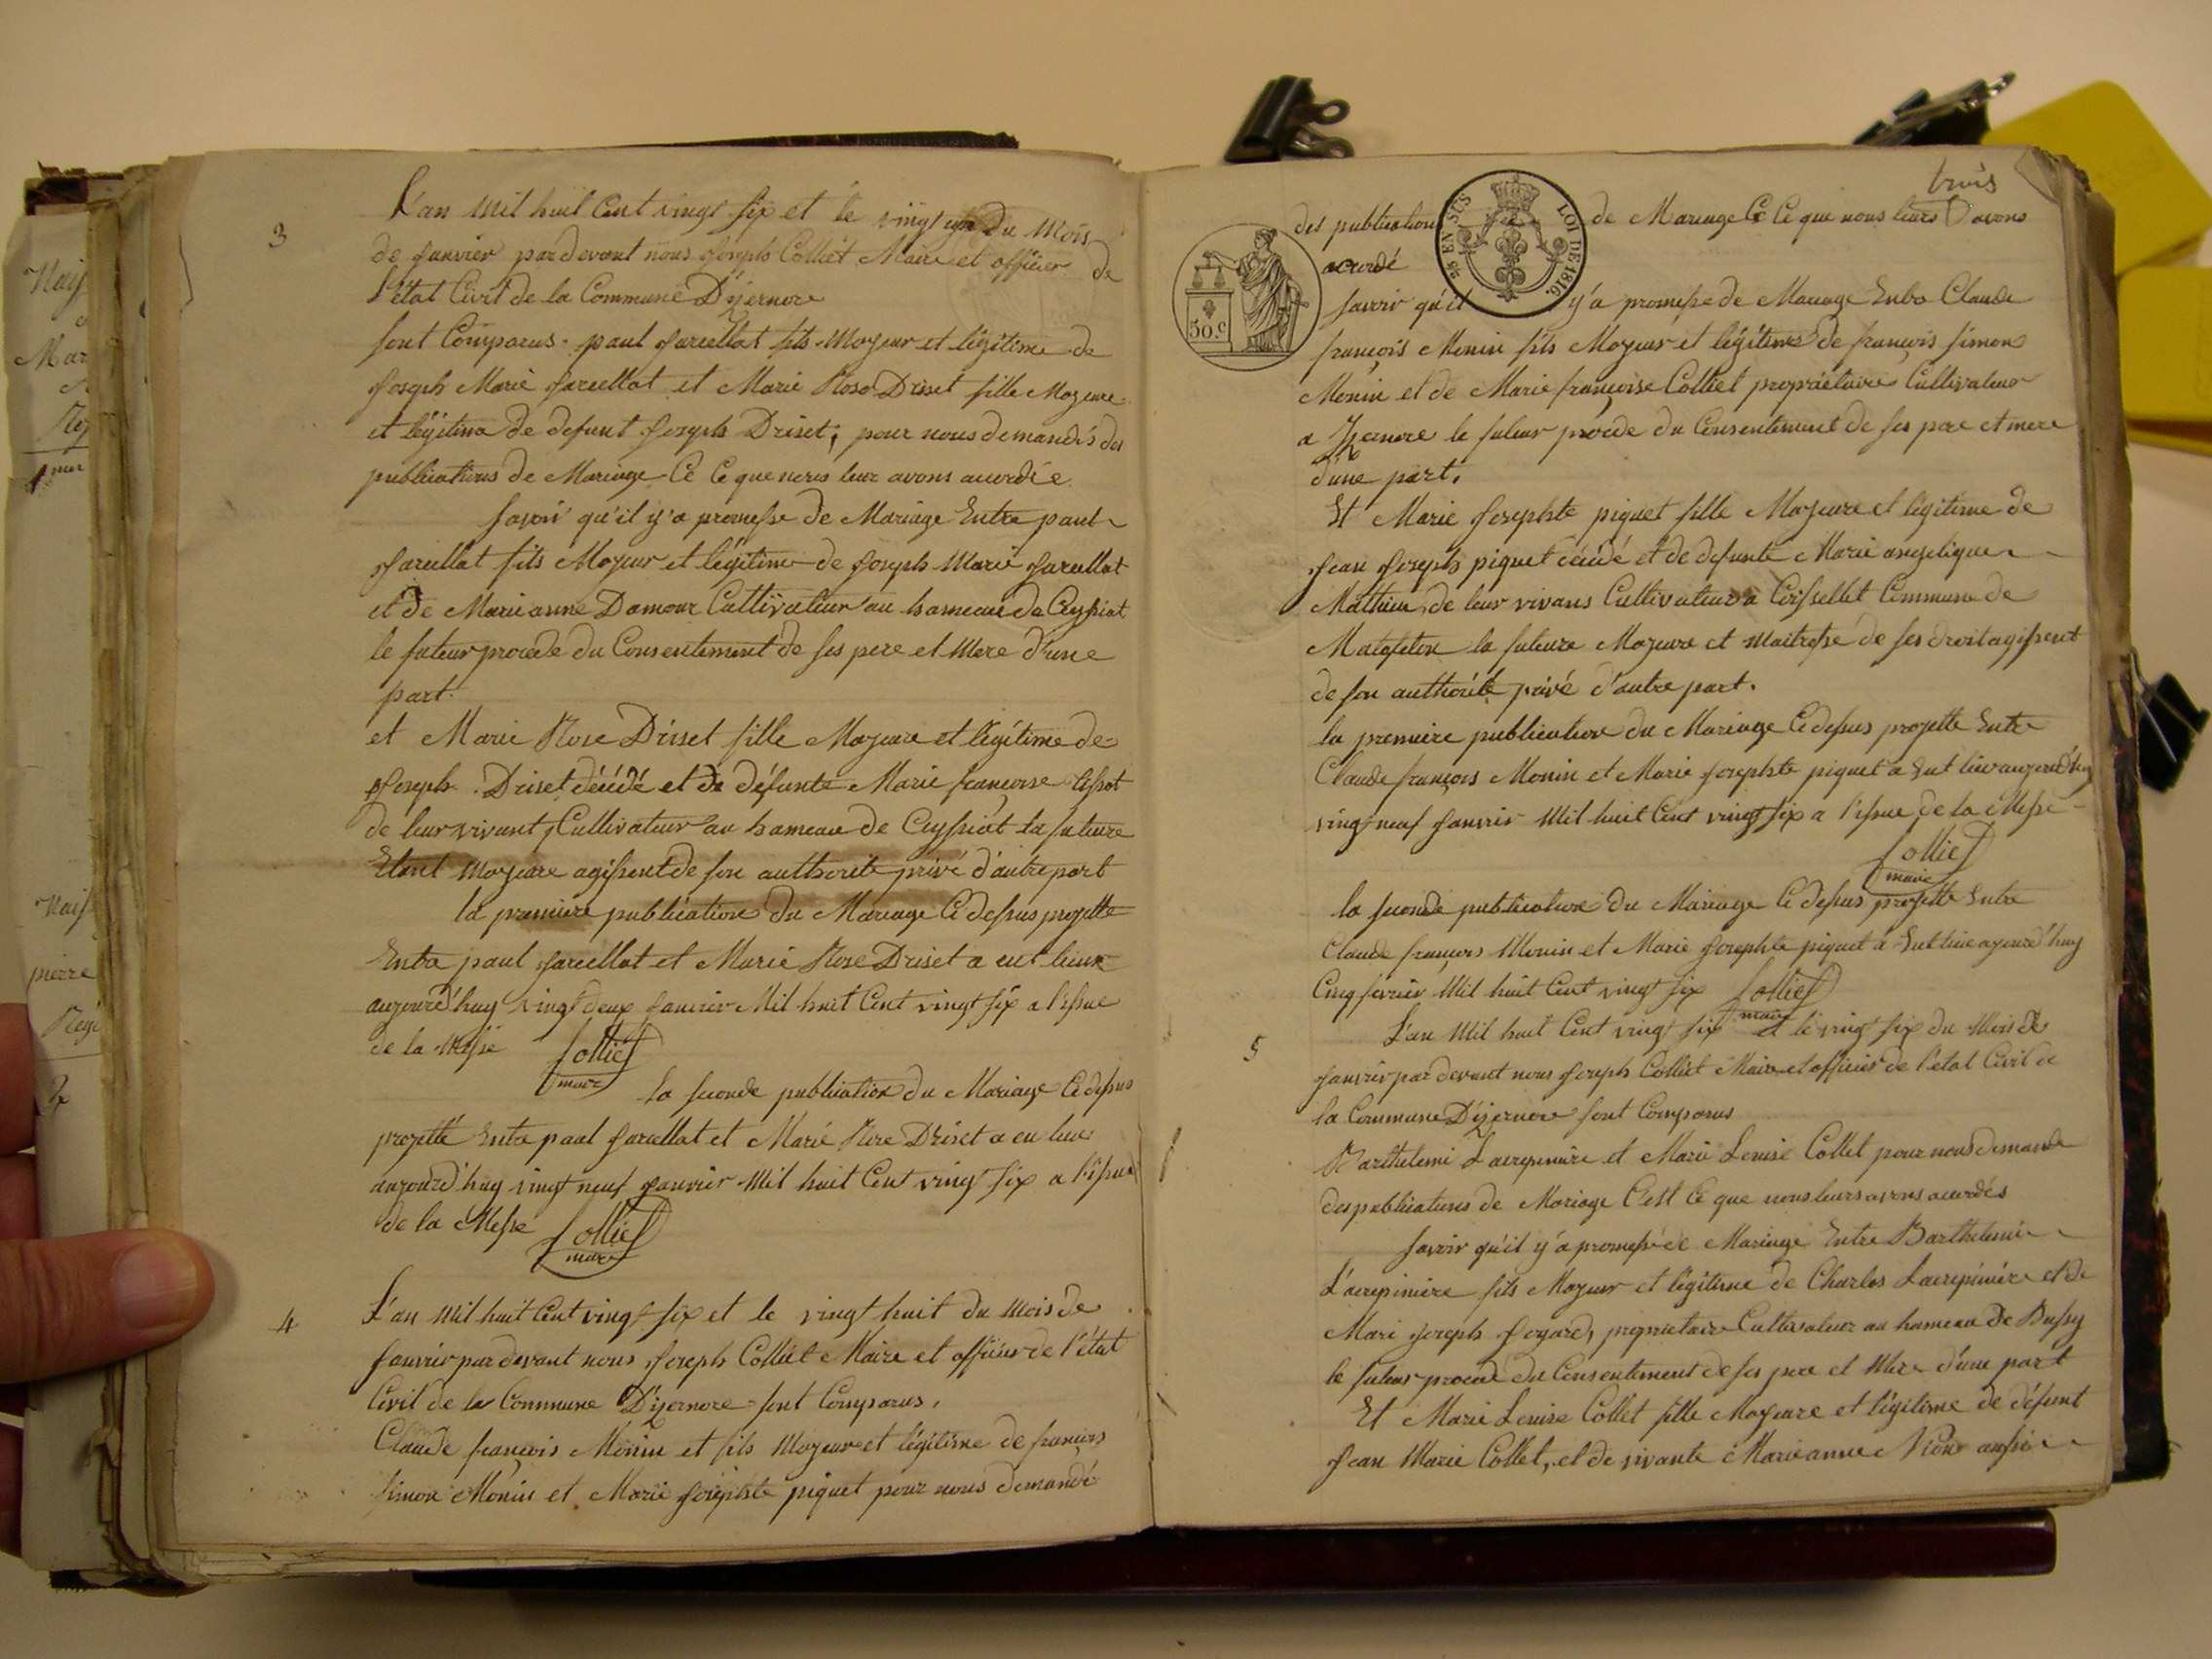 3
L'an mil huit Cent vingt six et le vingt un du Mois
de Janvier pardevant nous Joseph Colliet Maire et officier de
l'état Civil de la Commune D'izernore
sont Comparus paul Jarcellat fils Majeur et légitime de
Joseph Marie Jarcellat et Marie Rose Driset fille Majeure
et légitime de defunt Joseph Driset; pour nous demandés des
publications de Mariage Ce Ce que nous leur avons accordée
savoir qu'il y'a promesse de Mariage Entre paul
Jarcellat fils Majeur et légitime de Joseph Marie Jarcellat
et de Marie anne Damour Cultivateur au hameau de Ceyssiat
le futeur procede du Consentement de ses pere et Mere d'une
part.
et Marie Rose Driset fille Majeure et légitime de
Joseph Driset décédé et de défunte Marie francoise tissot
de leur vivant Cultivateur au hameau de Ceyssiat la future
Etant Majeure agissent de son authorité privé d'autre part
la premiere publication du Mariage Ci dessus projetté
Entre paul Jarcellat et Marie Rose Driset a eut lieux
aujourd'huy vingt deux Janvier Mil huit Cent vingt six a l'issue
de la Messe Colliet
maire
la seconde publication du Mariage Ci dessus
projetté Entre paul Jarcellat et Marie Rose Driset a eu lieu
aujourd'huy vingt neuf Janvier Mil huit Cent vingt six a l'issue
de la Messe Colliet
maire
4
L'an Mil huit Cent vingt six et le vingt huit du Mois de
Janvier par devant nous Joseph Colliet Maire et officier de l'état
Civil de la Commune D'izernore sont Comparus,
Claude francois Monin et fils Majeur et légitime de francois
simon Monin et Marie Josephte piquet pour nous demandé
trois
des publications de Mariage Ce Ce que nous leurs avons
accordé
EN SUS LOI DE 1816.
50.c
savoir qu'il y'a promesse de Mariage Entre Claude
françois Monin fils Majeur et légitime de francois simon
Monin et de Marie françoise Colliet propriétaire Cultivateur
a Izernore le futeur procede du Consentement de ses pere et mere
d'une part.
Et Marie Josephte piquet fille Majeure et légitime de
Jean Joseph piquet décédé et de defunte Marie angelique
Mathieu, de leur vivans Cultivateur a Commune de
la future Majeure et Maitresse de ses droit agissent
de son authorité privé d'autre part.
la premiere publication du Mariage Ci dessus projetté Entre
Claude françois Monin et Marie Josephte piquet a Eut lieu aujourd'huy
vingt neuf Janvier Mil huit Cent vingt six a l'issue de la Messe
Colliet
maire
la seconde publication du Mariage Ci dessus projetté Entre
Claude françois Monin et Marie Josephte piquet a Eut lieu ajourd'huy
Cinq février Mil huit Cent vingt six Colliet
maire
5
L'an Mil huit Cent vingt six et le vingt six du Mois de
Janvier par devant nous Joseph Colliet Maire et officier de l'état Civil de
la Commune D'izernore sont Comparus
Barthelemi Lacrepiniere et Marie Louise Collet pour nous demande
des publications de Mariage C'est Ce que nous leurs avons accordés
savoir qu'il y'a promesse de Mariage Entre Barthelemi
Lacrepiniere fils Majeur et légitime de Charles Lacrepiniere et de
Mari Joseph Goyard, propriétaire Cultivateur au hameau de Bussy
le futeur procede du Consentement de ses pere et Mere d'une part
Et Marie Louise Collet fille Majeure et légitime de défunt
Jean Marie Collet, et de vivante Marie anne aussi